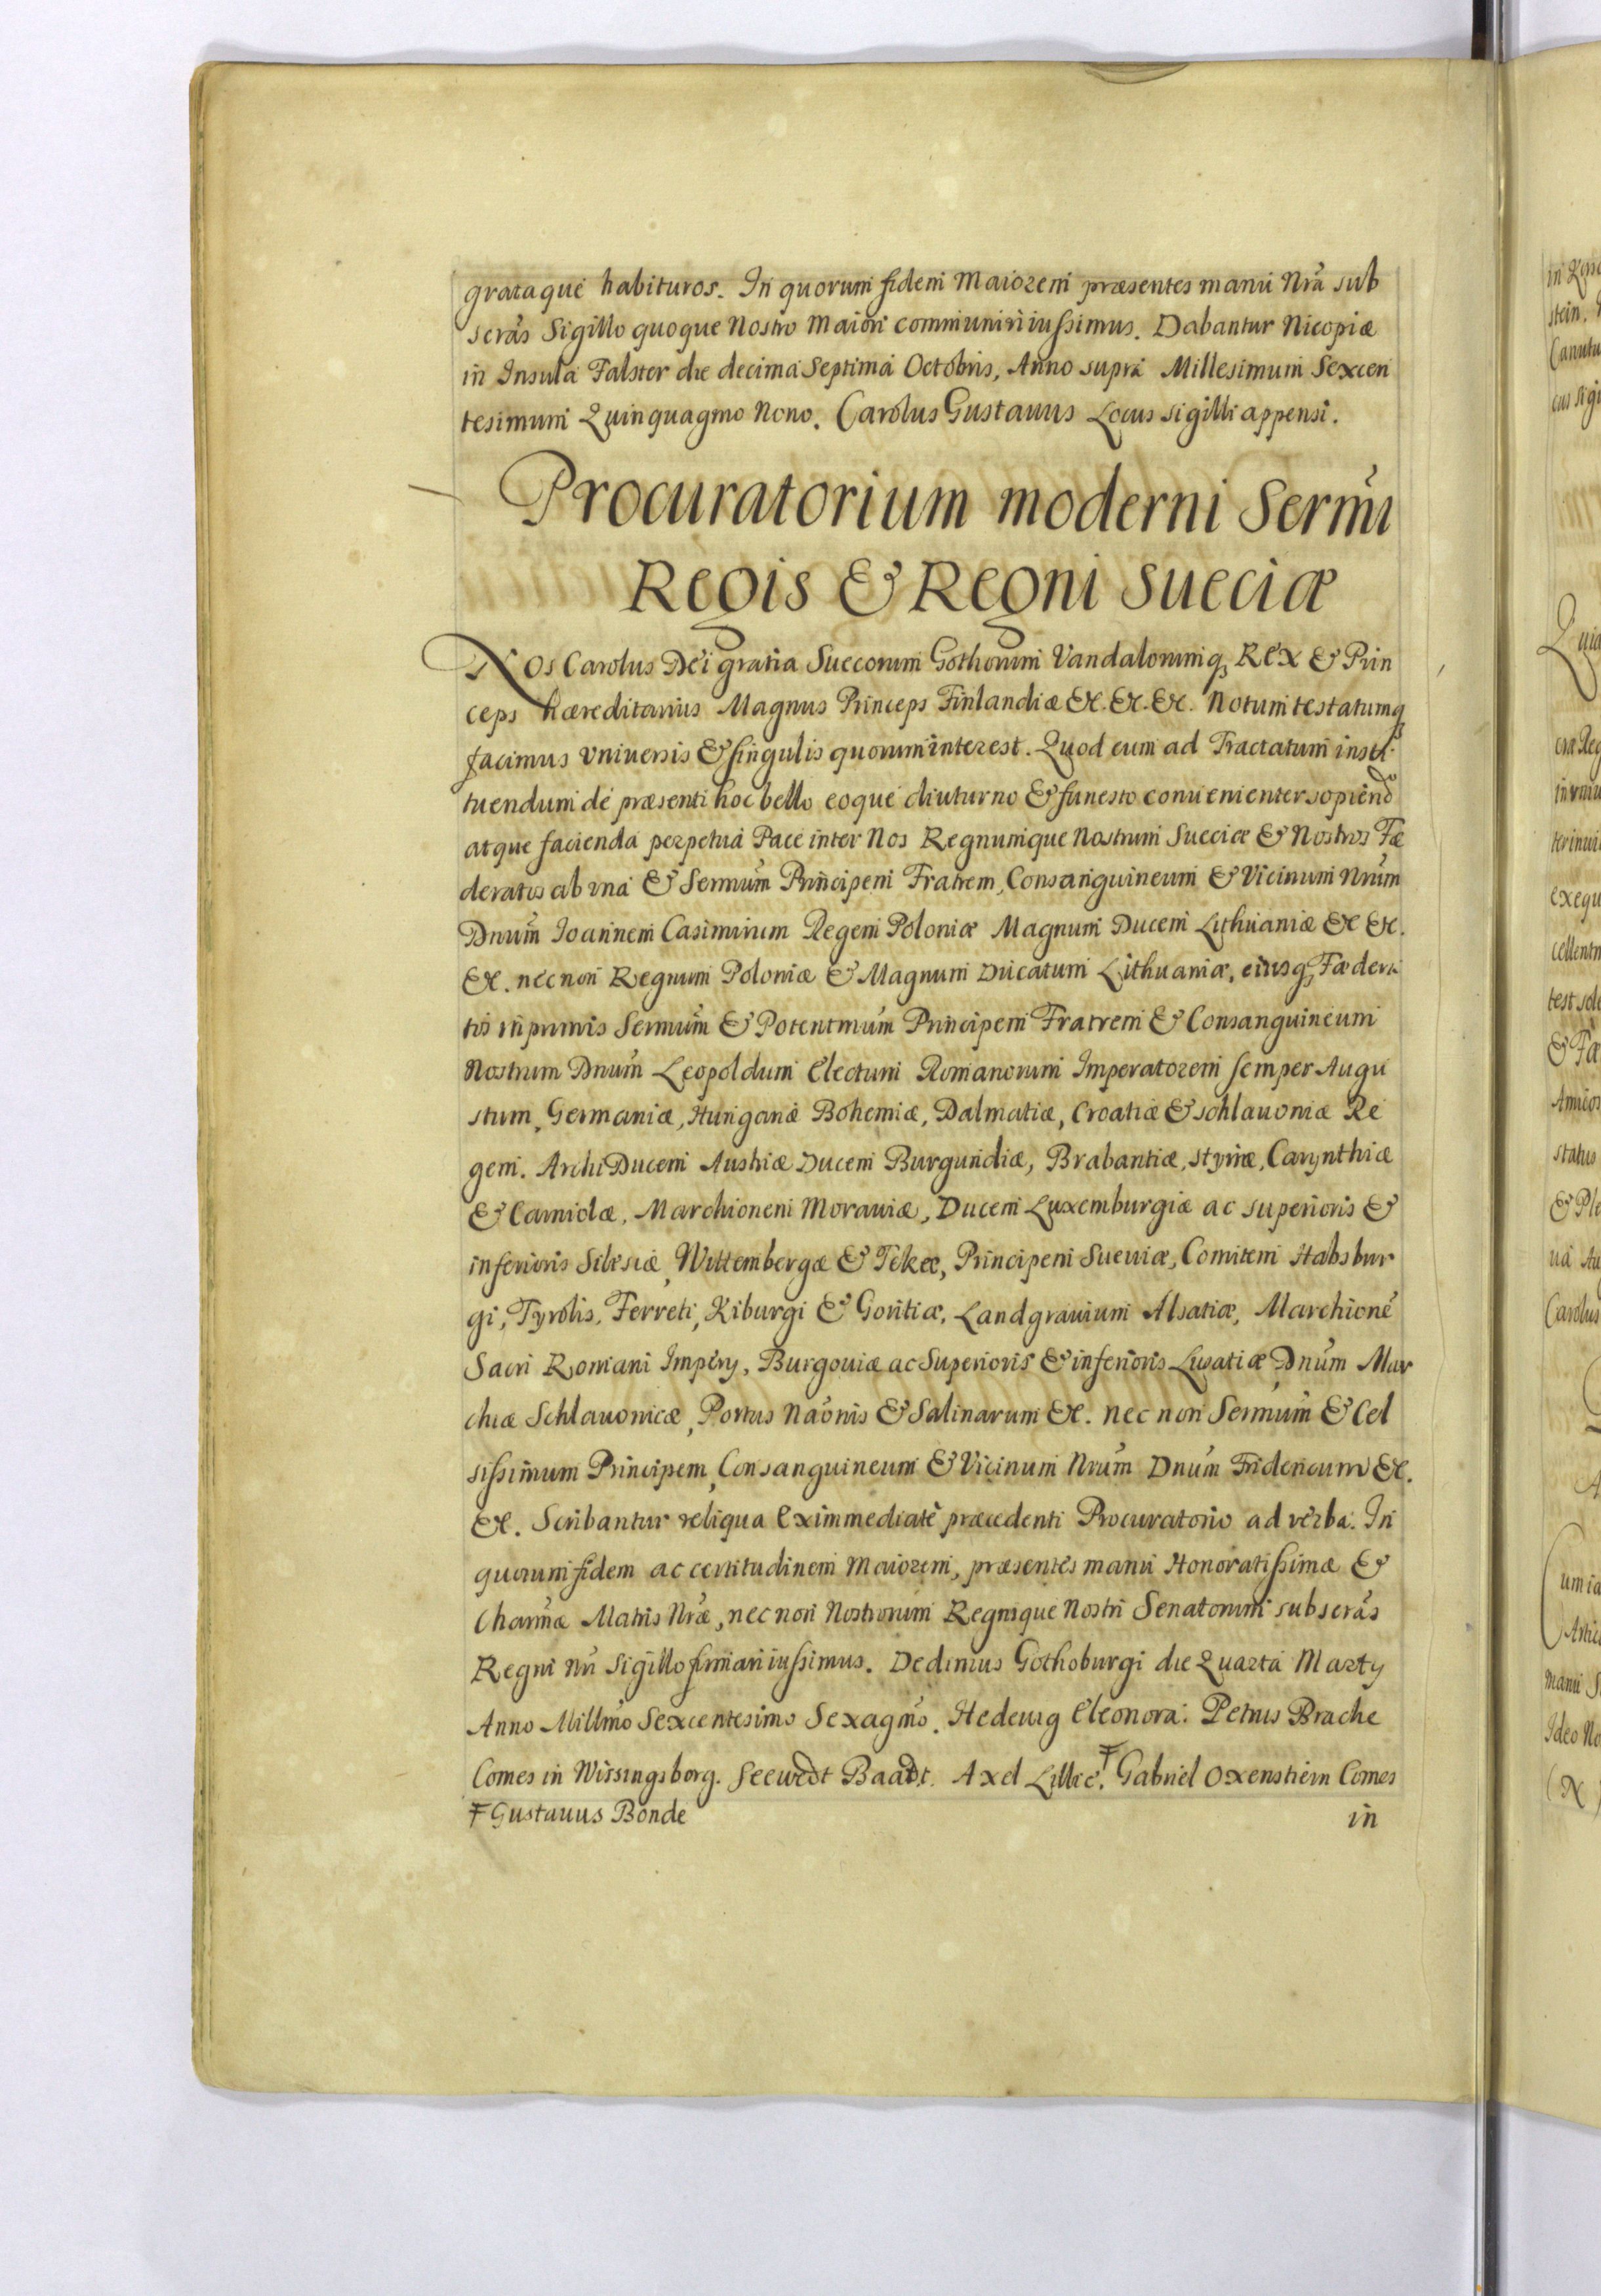 grataque habituros. In quorum fidem Maiorem præsentes manu Nrâ sub
scrās Sigillo quoque Nostro Maiori communiri iussimus. Dabantur Nicopiæ
in Insula Falster die decima Septima Octobris, Anno supra Millesimum Sexcen
tesimum Quinquagmo Nono. Carolus Gustavus Locus sigilli appensi.
Procuratorium moderni Sermi
Regis & Regni Sueciæ
Nos Carolus Dei gratia Suecorum Gothorum Vandalorumq, Rex & Prin
ceps hæreditarius Magnus Princeps Finlandiæ &c. &c. &c. Notum testatumq
facimus universis & singulis quorum interest. Quod cum ad Tractatum insti
tuendum de præsenti hoc bello eoque diuturno & funesto convenienter sopiendo
atque facienda perpetua Pace inter Nos Regnumque Nostrum Sueciæ & Nostros Fæ
deratos ab una & Sermum Principem Fratrem, Consanguineum & Vicinum Nrum
Dnum Ioannem Casimirum Regem Poloniæ Magnum Ducem Lithuaniæ &c &c.
&c. nec non Regnum Poloniæ & Magnum Ducatum Lithuaniæ, eiusq, Fædera
tos inprimis Sermum & Potentmum Principem Fratrem & Consanguineum
Nostrum Dnum Leopoldum Electum Romanorum Imperatorem semper Augu
stum, Germaniæ, Hungariæ Bohemiæ, Dalmatiæ, Croatiæ & Schlavoniæ Re
gem. ArchiDucem Austriæ Ducem Burgundiæ, Brabantiæ, Styriæ, Carynthiæ
& Carniolæ, Marchionem Moraviæ, Ducem Luxemburgiæ ac superioris &
inferioris Silesiæ, Wittembergæ & Tekee, Principem Sueviæ, Comitem Habsbur
gi, Tyrolis, Ferreti, Kiburgi & Goritiæ, Landgravium Alsatiæ, Marchione
Sacri Romani Impery, Burgoviæ ac Superioris & inferioris Lusatiæ Dnum Mar
chiæ Schlavonicæ, Portus Naonis & Salinarum &c. nec non Sermum & Cel
sissimum Principem, Consanguineum & Vicinum Nrum Dnum Fridericum &c.
&c. Scribantur reliqua ex immediate præcedenti Procuratorio ad verba. In
quorum fidem ac certitudinem Maiorem, præsentes manu Honoratissimæ &
Charmæ Matris Nræ, nec non Nostrorum Regnique Nostri Senatorum subscrās
Regni Nri Sigillo firmari iussimus. Dedimus Gothoburgi die Quarta Marty
Anno Millmo Sexcentesimo Sexagmo. Hedewig Eleonora. Petrus Brache
Comes in Wissingsborg. Seewedt Baadt. Axel Lillie. Ŧ Gabriel Oxenstiern Comes
Ŧ Gustavus Bonde
in